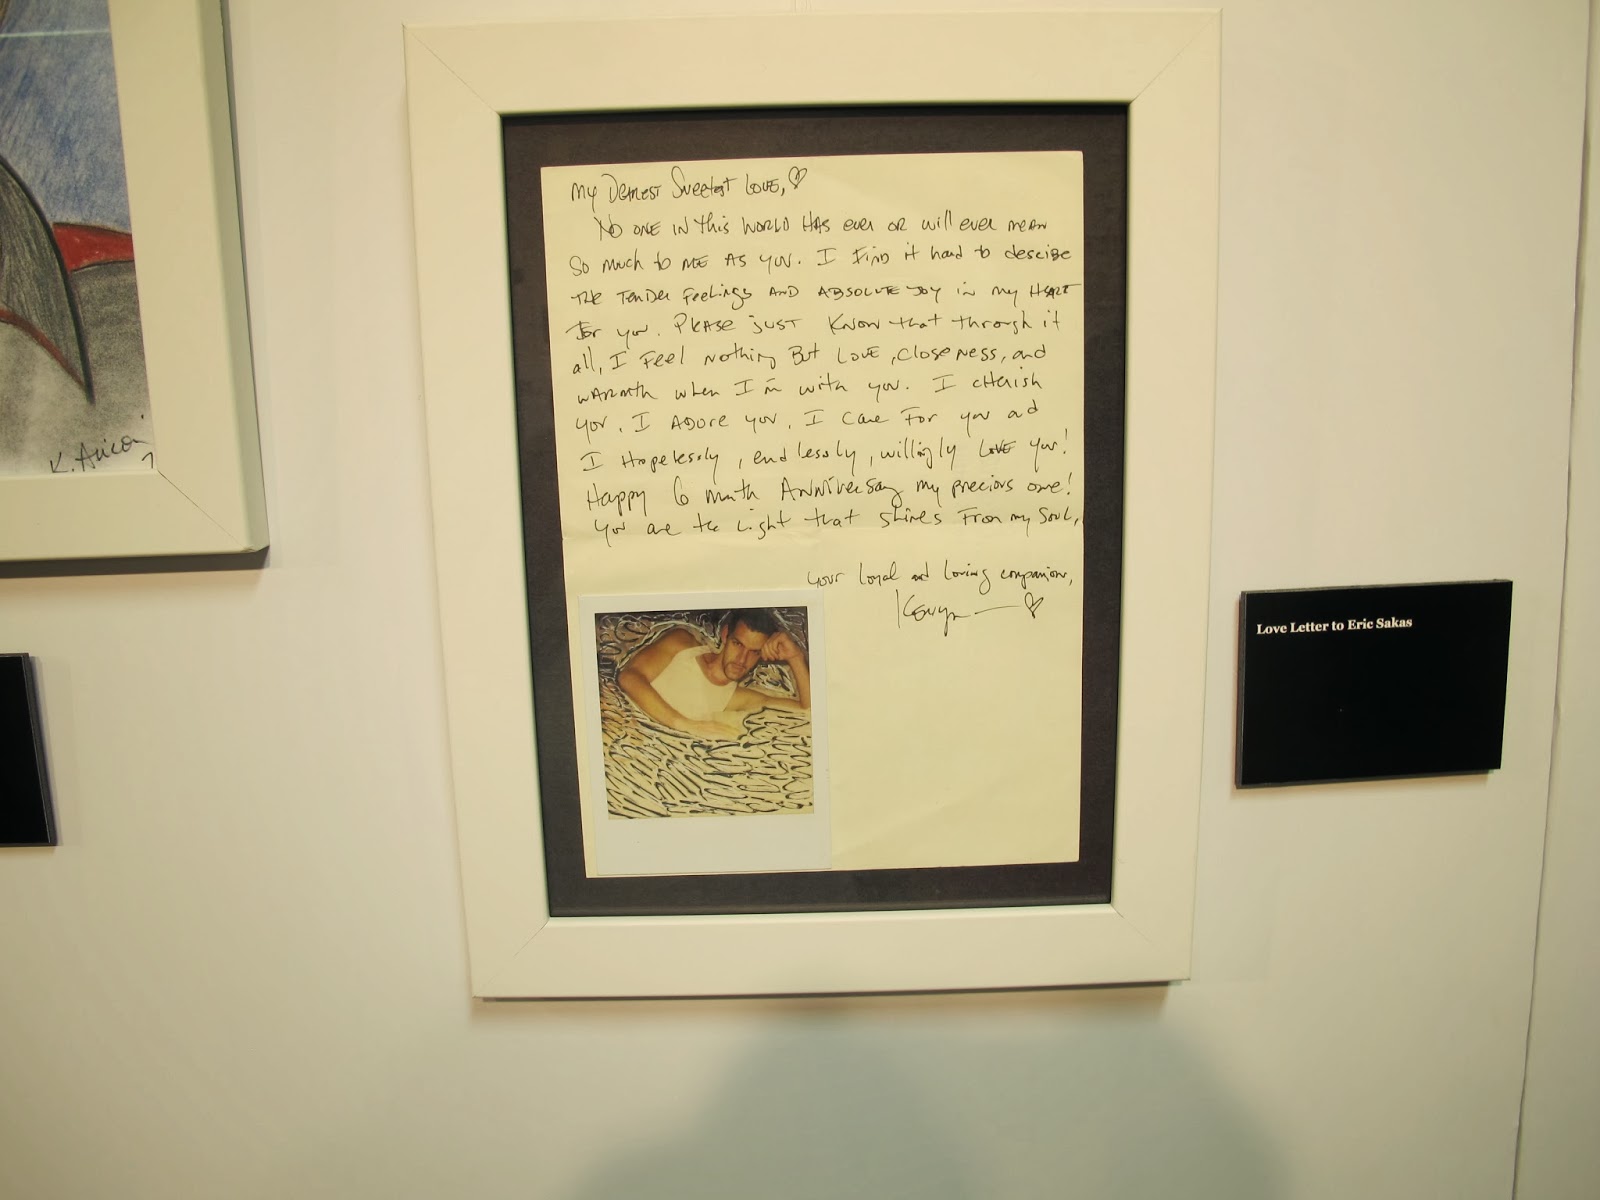 My Dearest Sweetest Love,
No one in this world has ever or will ever mean
so much to me as you. I find it hard to describe
the tender feelings and absolute joy in my heart
for you. Please just know that through it
all, I feel nothing but love, closeness, and
warmth when I'm with you. I cherish
you. I adore you. I care for you and
I hopelessly, endlessly, willingly love you!
Happy 6 month Anniversay my precious one!
You are the light that shines from my soul,
Your loyal and loving companion,
Kevyn
Love Letter to Eric Sakas